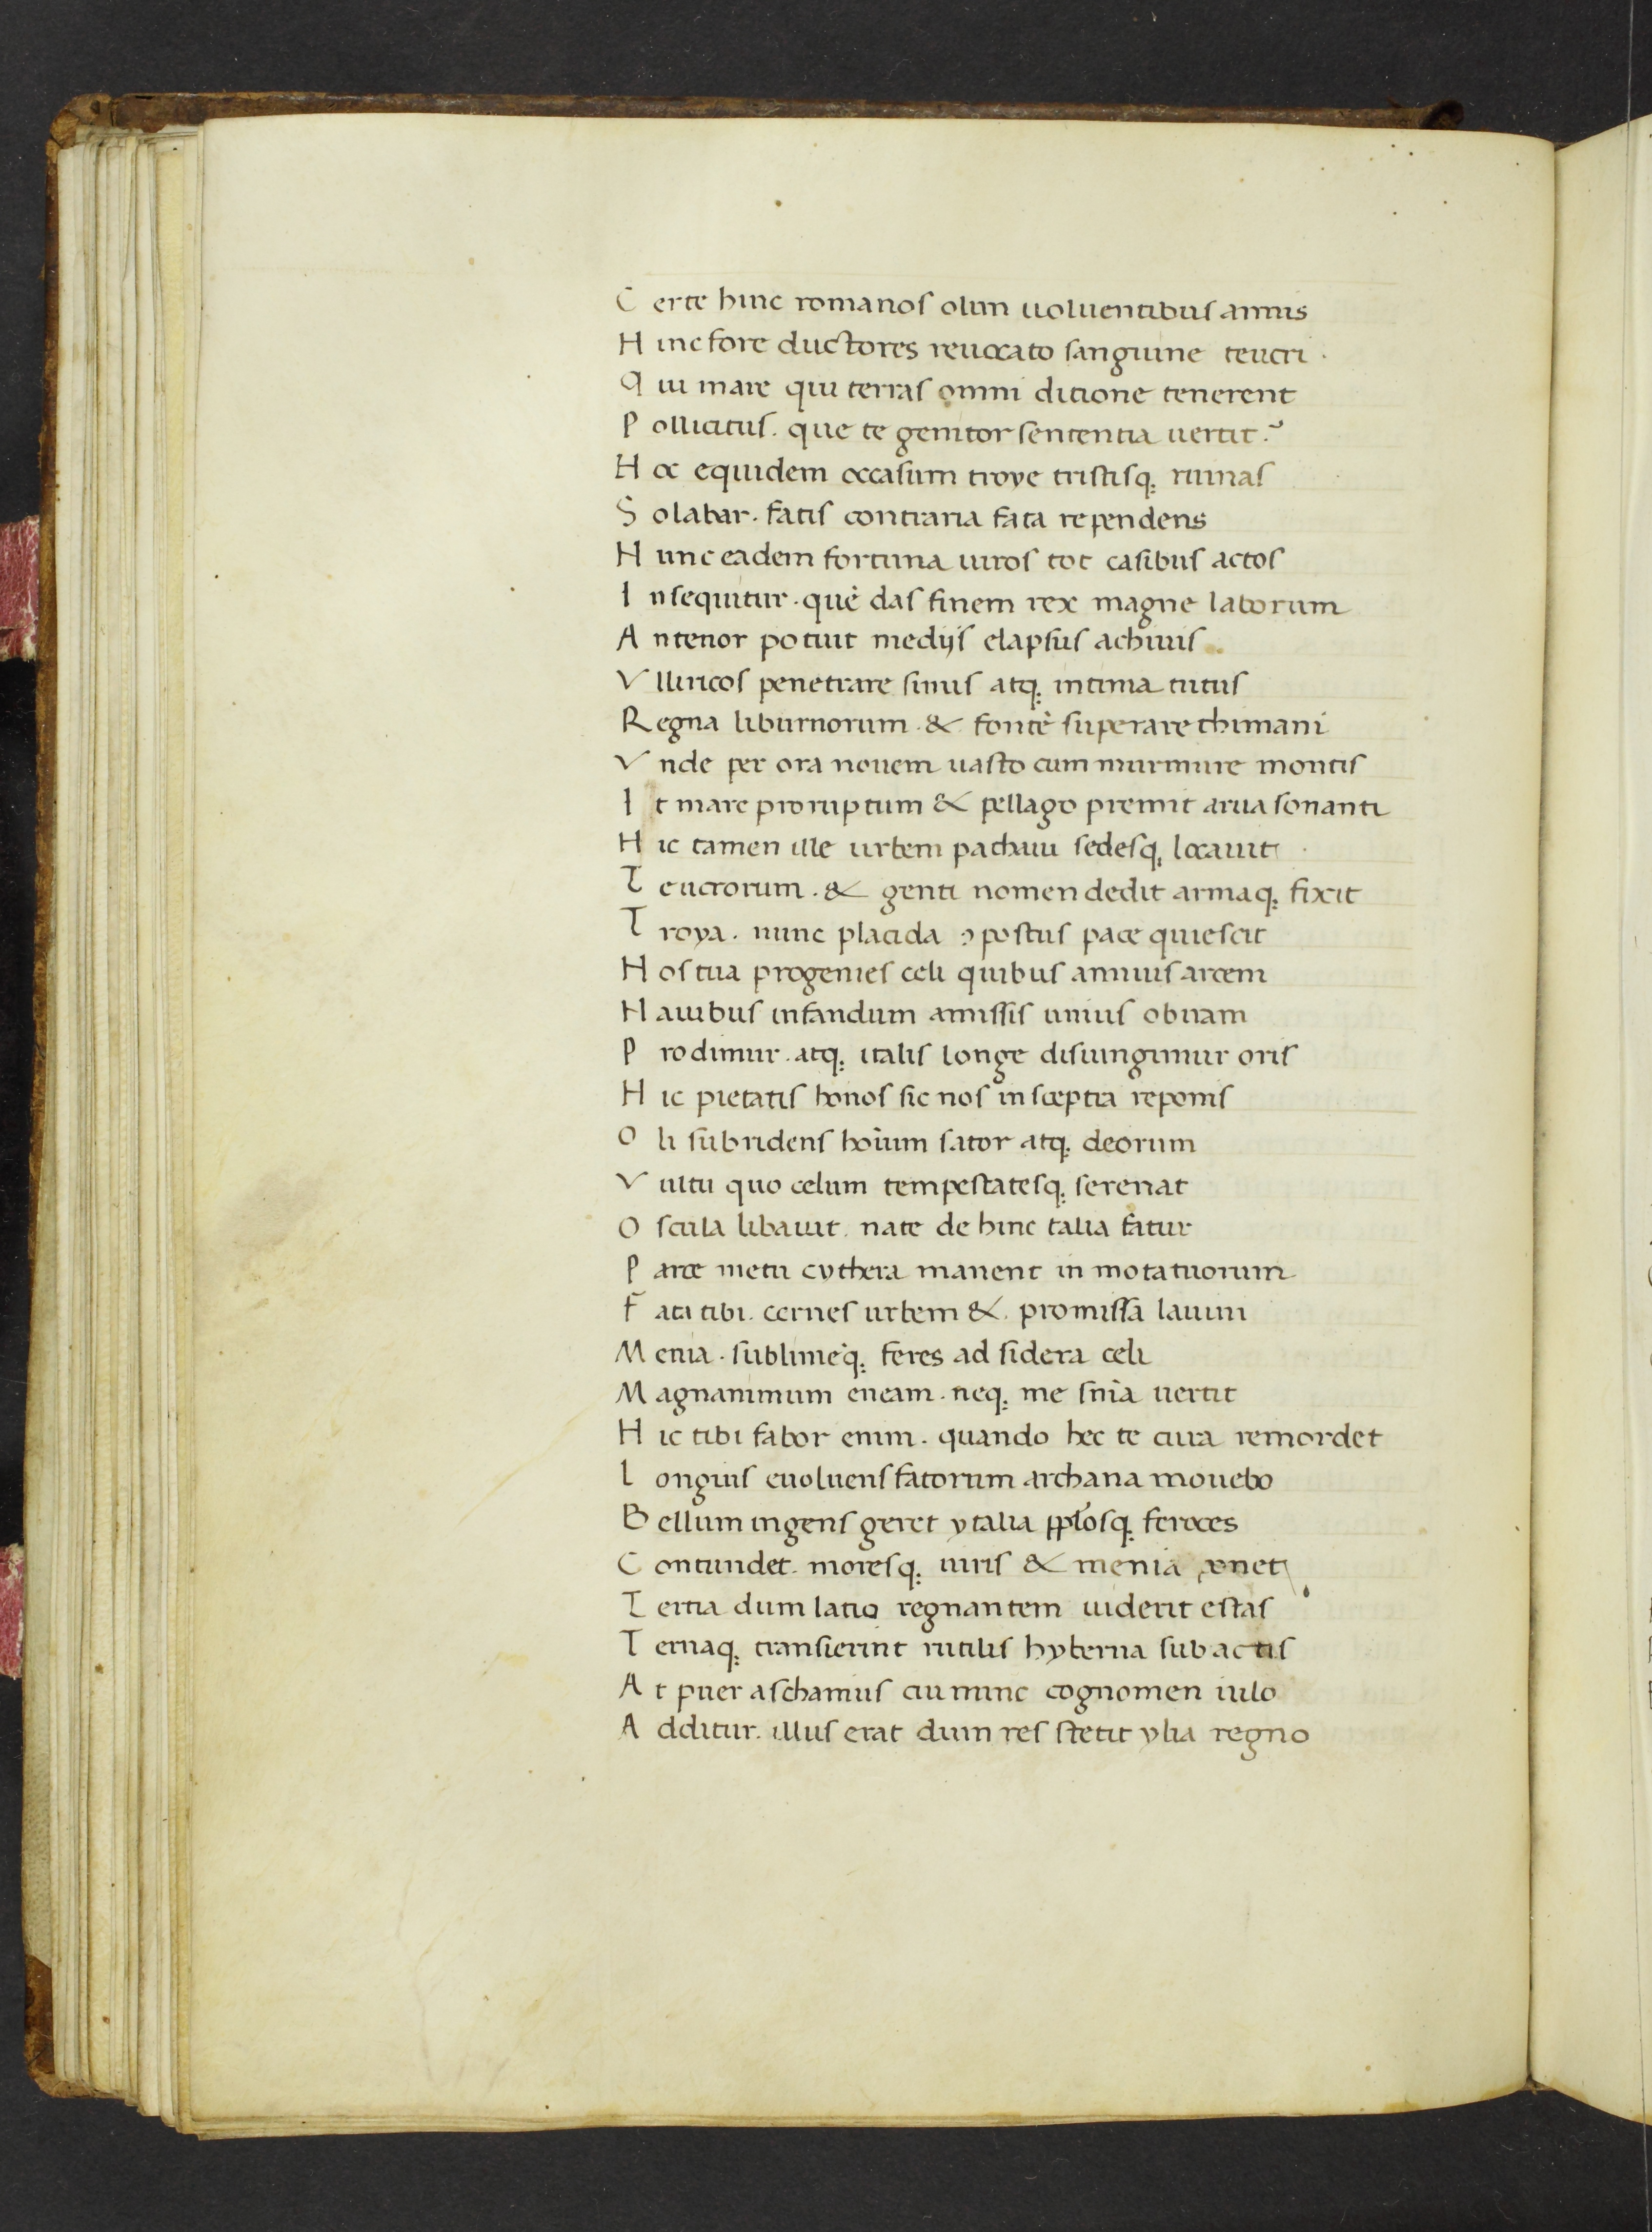 C erte hinc romanos olim uoluentibus annis
H inc fore ductores reuocato sanguine teucri ·
Q ui mare qui terras omni dicione tenerent
P ollicitus · que te genitor sententia uertit ?
H oc equidem occasum troye tristisq; ruinas
S olabar · fatis contraria fata rependens
H unc eadem fortuna uiros tot casibus actos
I nsequitur · quē das finem rex magne laborum
A ntenor potuit medijs elapsus achiuis
V lliricos penetrare sinus atq; intima tutus
R egna liburnorum · & fontē superare thimani
V nde per ora nouem uasto cum murmure montis
I t mare proruptum & pellago premit arua sonanti
H ic tamen ille urbem pathaui sedesq; locauit ·
T eucrorum · & genti nomen dedit armaq; fixit
T roya · nunc placida ꝯpostus pace quiescit
H os tua progenies celi quibus annuis arcem
H auibus infandum amissis unius ob iram
P rodimur · atq; italis longe disiungimur oris
H ic pietatis honos sic nos in sceptra reponis
O li subridens hoīum sator atq; deorum
V ultu quo celum tempestatesq; serenat
O scula libauit · nate de hinc talia fatur
P arce metu cythera manent in mota tuorum
F ata tibi · cernes urbem & · promissa lauini
M enia · sublimēq; feres ad sidera celi
M agnanimum eneam · neq; me snīa uertit
H ic tibi fabor enim · quando hec te cura remordet
L ongius euoluens fatorum archana mouebo
B ellum ingens geret ytalia pplōsq; feroces
C ontundet · moresq; uiris & menia ponet
T ertia dum latio regnantem uiderit estas
T ernaq; transierint rutilis hyberna subactis
A t puer aschanius cui nunc cognomen iulo
A dditur · illus erat dum res stetit ylia regno